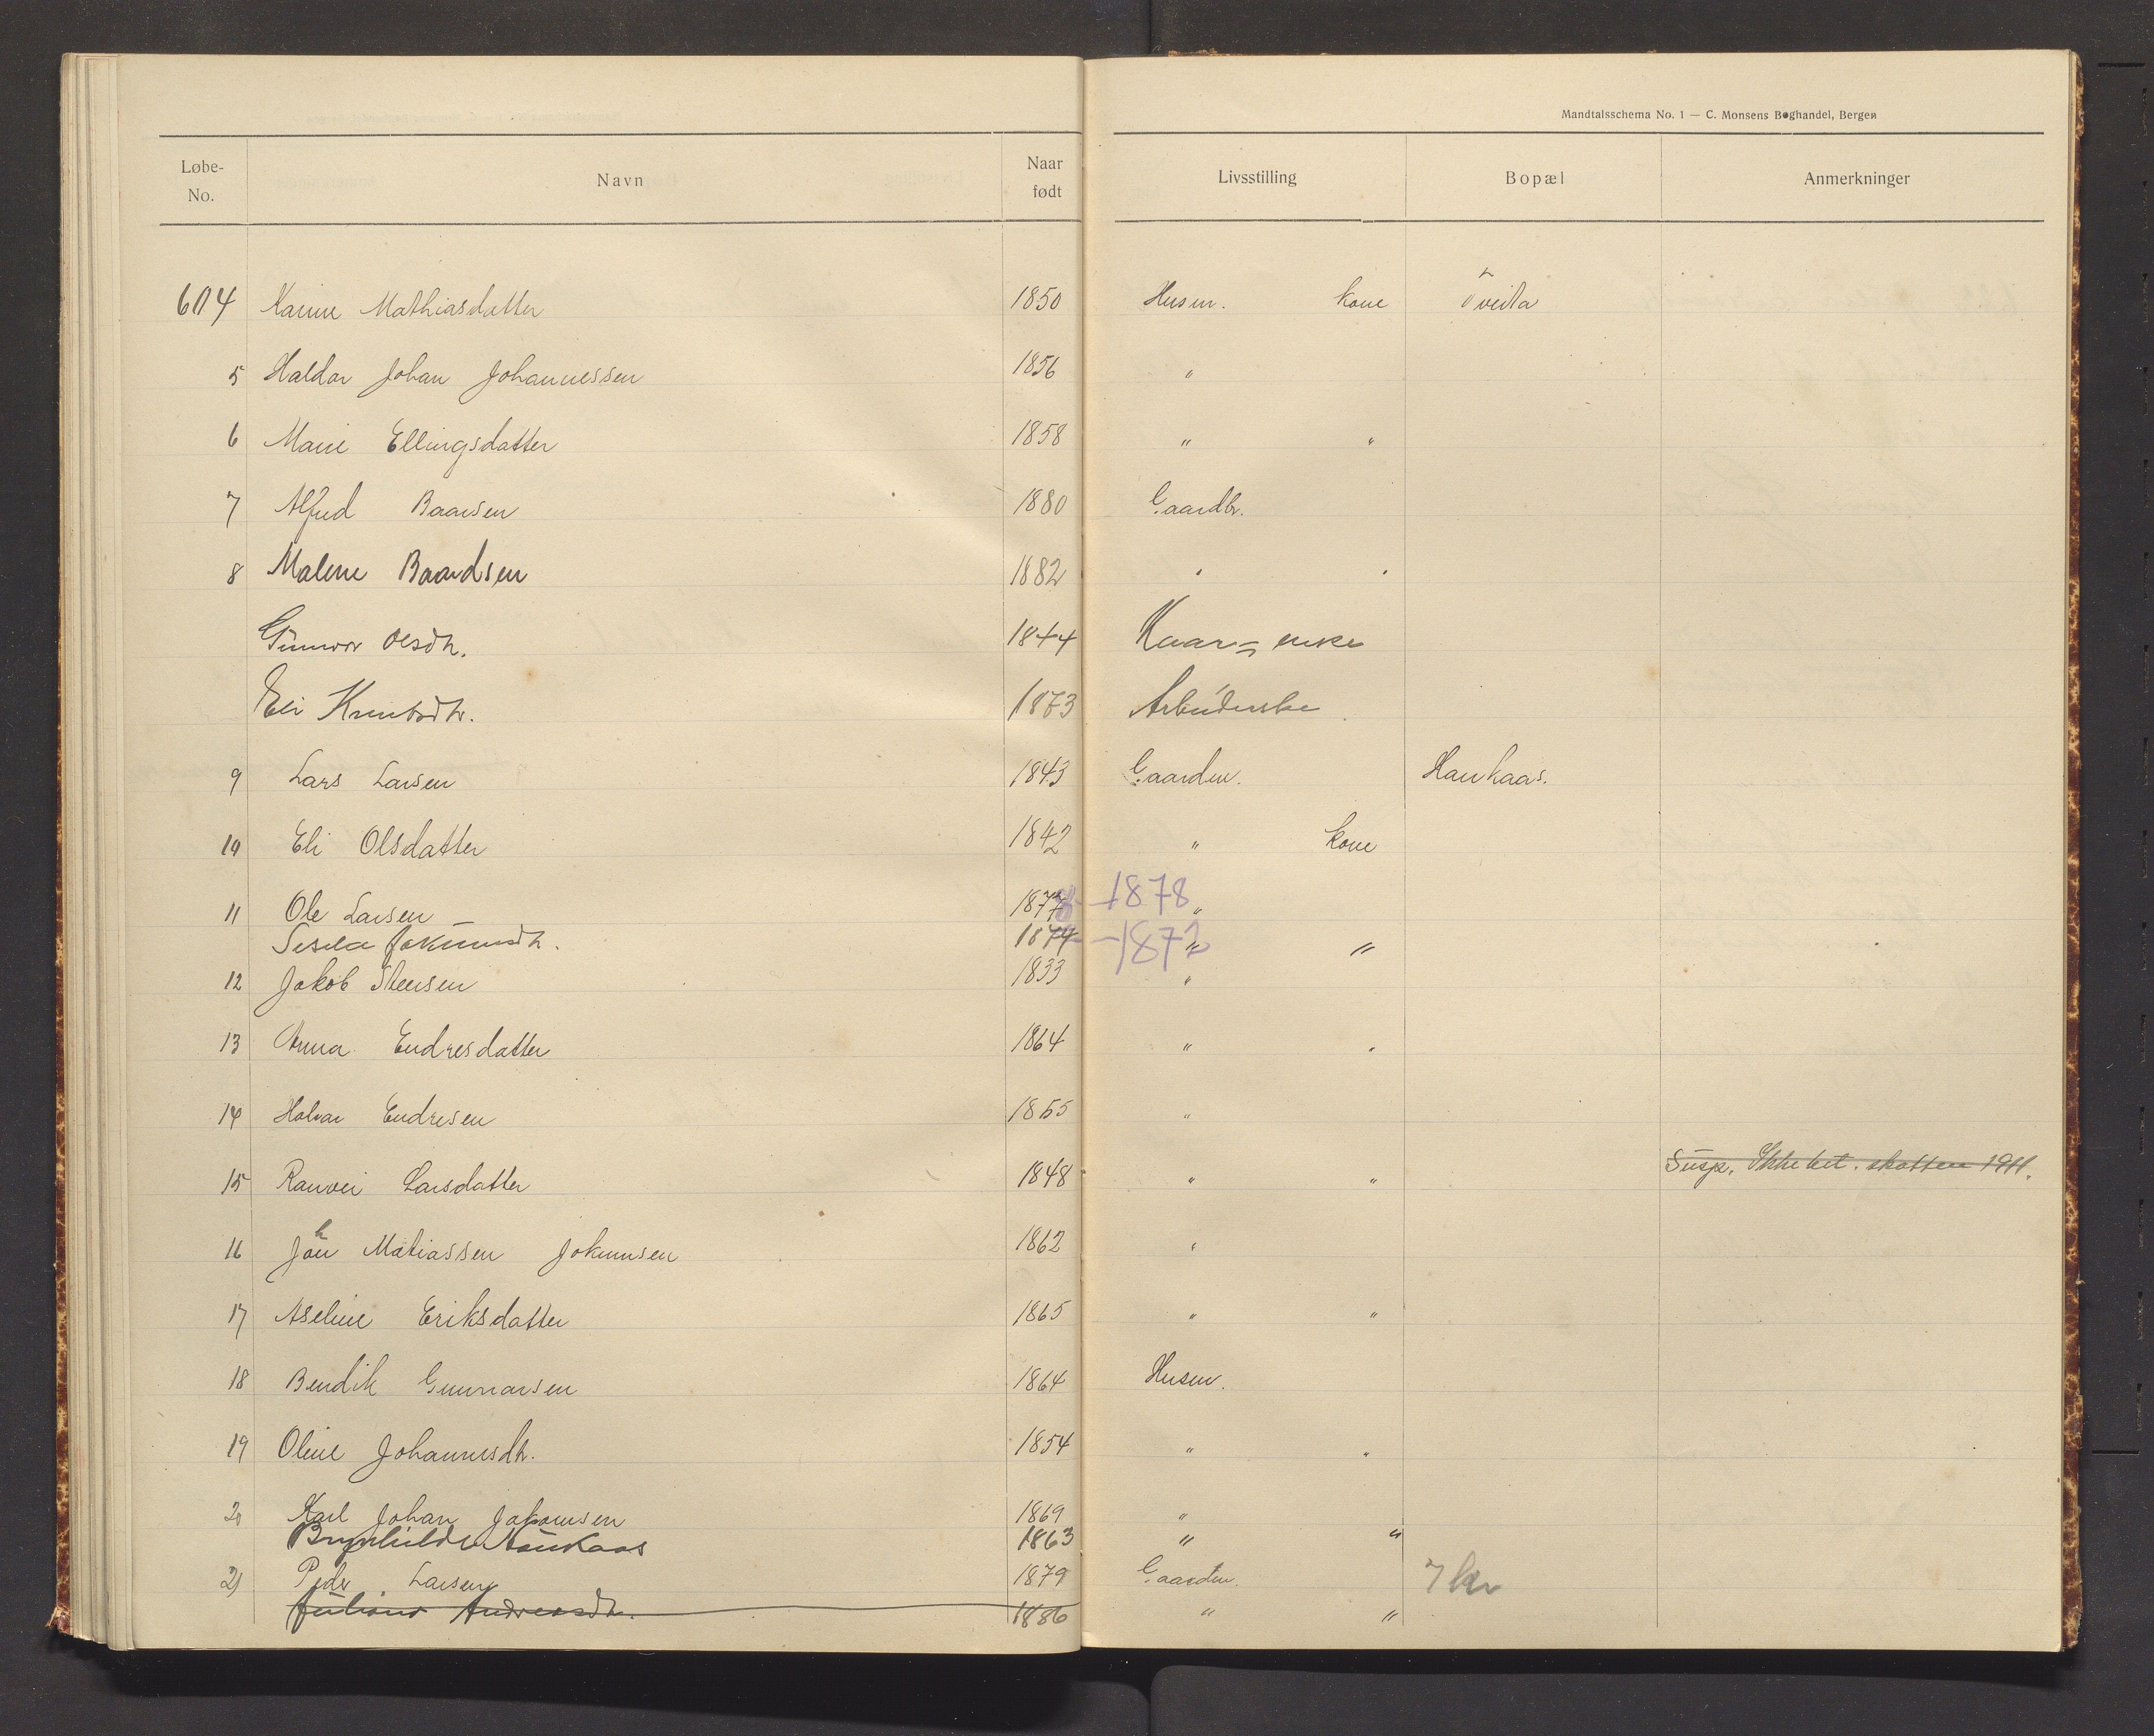 Mandtalsschema No. 1 — C. Monsens Boghandel, Bergen
Løbe-No. Navn Naar født Livsstilling Bopæl Anmerkninger
604 Karine Mathiasdatter 1850 Husm. kone Tveita
5 Haldor Johan Johannessen 1856 "
6 Marie Ellingsdatter 1858 " "
7 Alfred Baarsen 1880 Gaardbr.
8 Malene Baardsen 1882 " "
Gunvor Olsdtr. 1844 Kaar= enke
Eli Knutsdtr. 1873 Arbeiderske
9 Lars Larsen 1843 Gaardm. Haukaas.
10 Eli Olsdatter 1842 " kone
11 Ole Larsen 1877 – 1878 "
Sesela Jokumsdtr. 1874 – 1872 " "
12 Jakob Steensen 1833 "
13 Anna Endresdatter 1864 " "
14 Halvar Endresen 1855 "
15 Ranvei Larsdatter 1848 " " Susp. Ikke bet. skatten 1911.
16 Johan Matiassen Jokumsen 1862 "
17 Aseline Eriksdatter 1865 " "
18 Bendik Gunnarsen 1864 Husm.
19 Oline Johannesdtr. 1854 " "
20 Karl Johan Jakobsen 1869 "
Brynhilde Haukaas 1863 " "
21 Peder Larsen 1879 Gaardm. 7 kr
Juliane Andreasdtr. 1886 " "